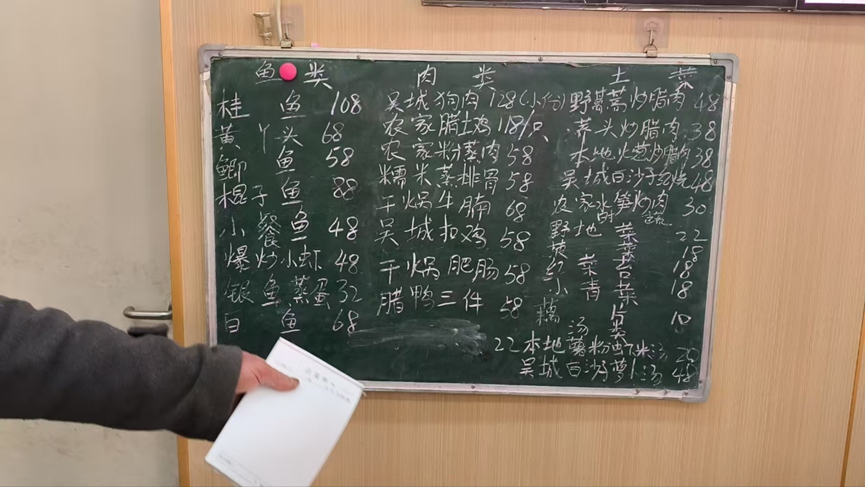 鱼类
桂鱼 108
黄丫头 68
鲫鱼 58
棍子鱼 88
小餐鱼 48
爆炒小虾 48
银鱼蒸蛋 32
白鱼 68
肉类
吴城狗肉 128(小份)
农家腊土鸡 118/只
农家粉蒸肉 58
糯米蒸排骨 58
干焗牛腩 68
吴城扣鸡 58
干焗肥肠 58
腊鸭三件 58
土菜
野藜蒿炒腊肉 48
菜头炒腊肉 38
本地火葱炒腊肉 38
吴城白沙子红烧 48
农家水笋炒肉 30
时蔬
野地菜 22
菠菜 18
红菜苔 18
小青菜 18
藕片 18
汤类
22 本地薯粉虾米汤 25
吴城白沙子萝卜汤 48